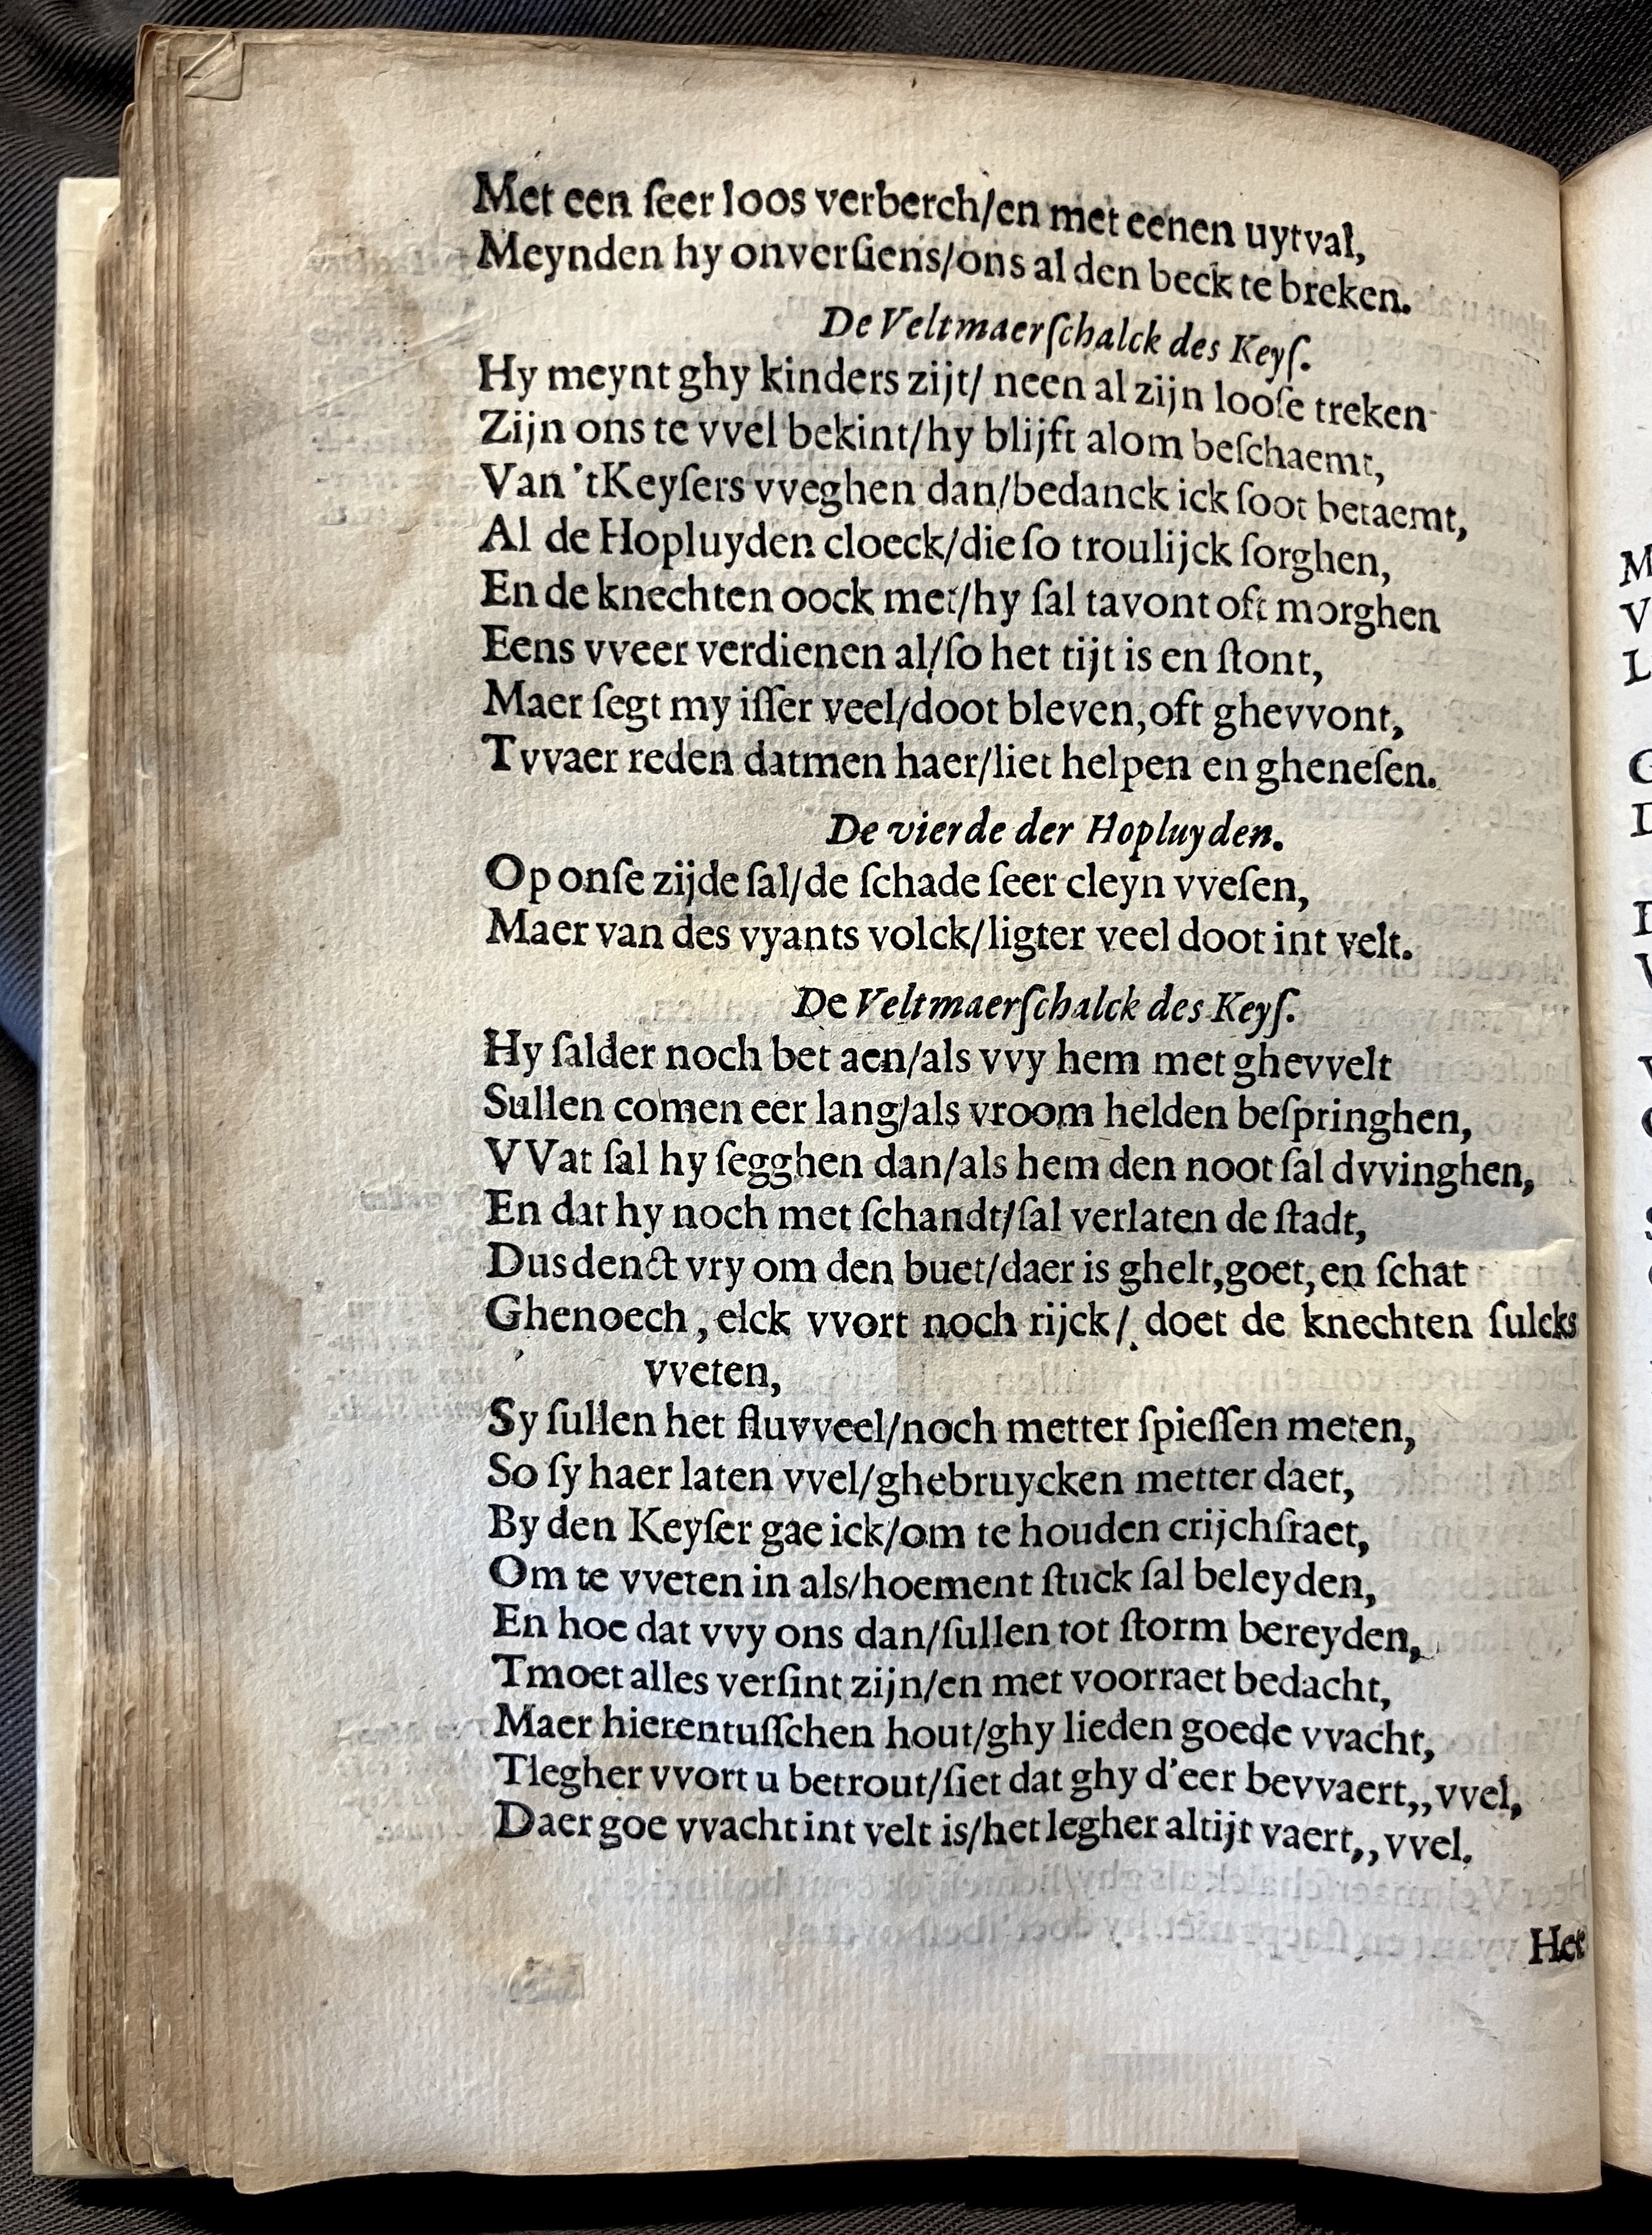 Met een ſeer loos verberch/en met eenen uytval,
Meynden hy onverſiens/ons al den beck te breken.
De Veltmaerſchalck des Keyſ.
Hy meynt ghy kinders zijt/ neen al zijn looſe treken
Zijn ons te vvel bekint/hy blijft alom beſchaemt,
Van 'tKeyſers vveghen dan/bedanck ick ſoot betaemt,
Al de Hopluyden cloeck/die ſo troulijck ſorghen,
En de knechten oock met/hy ſal tavont oft morghen
Eens vveer verdienen al/ſo het tijt is en ſtont,
Maer ſegt my iſſer veel/doot bleven,oft ghevvont,
Tvvaer reden datmen haer/liet helpen en gheneſen.
De vierde der Hopluyden.
Op onſe zijde ſal/de ſchade ſeer cleyn vveſen,
Maer van des vyants volck/ligter veel doot int velt.
De Veltmaerſchalck des Keyſ.
Hy ſalder noch bet aen/als vvy hem met ghevvelt
Sullen comen eer lang/als vroom helden beſpringhen,
VVat ſal hy ſegghen dan/als hem den noot ſal dvvinghen,
En dat hy noch met ſchandt/ſal verlaten de ſtadt,
Dus denct vry om den buet/daer is ghelt,goet,en ſchat
Ghenoech, elck vvort noch rijck/ doet de knechten ſulcks
vveten,
Sy ſullen het fluvveel/noch metter ſpieſſen meten,
So ſy haer laten vvel/ghebruycken metter daet,
By den Keyſer gae ick/om te houden crijchſraet,
Om te vveten in als/hoement ſtuck ſal beleyden,
En hoe dat vvy ons dan/ſullen tot ſtorm bereyden,
Tmoet alles verſint zijn/en met voorraet bedacht,
Maer hierentuſſchen hout/ghy lieden goede vvacht,
Tlegher vvort u betrout/ſiet dat ghy d'eer bevvaert,,vvel,
Daer goe vvacht int velt is/het legher altijt vaert,,vvel.